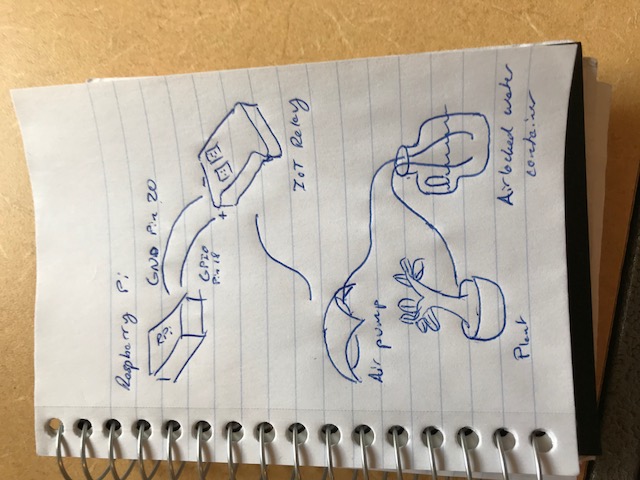 Raspberry Pi
RPi
GND Pin 20
GPIO
Pin 18
+
-
IoT Relay
Air pump
Plant
Airlocked water
container